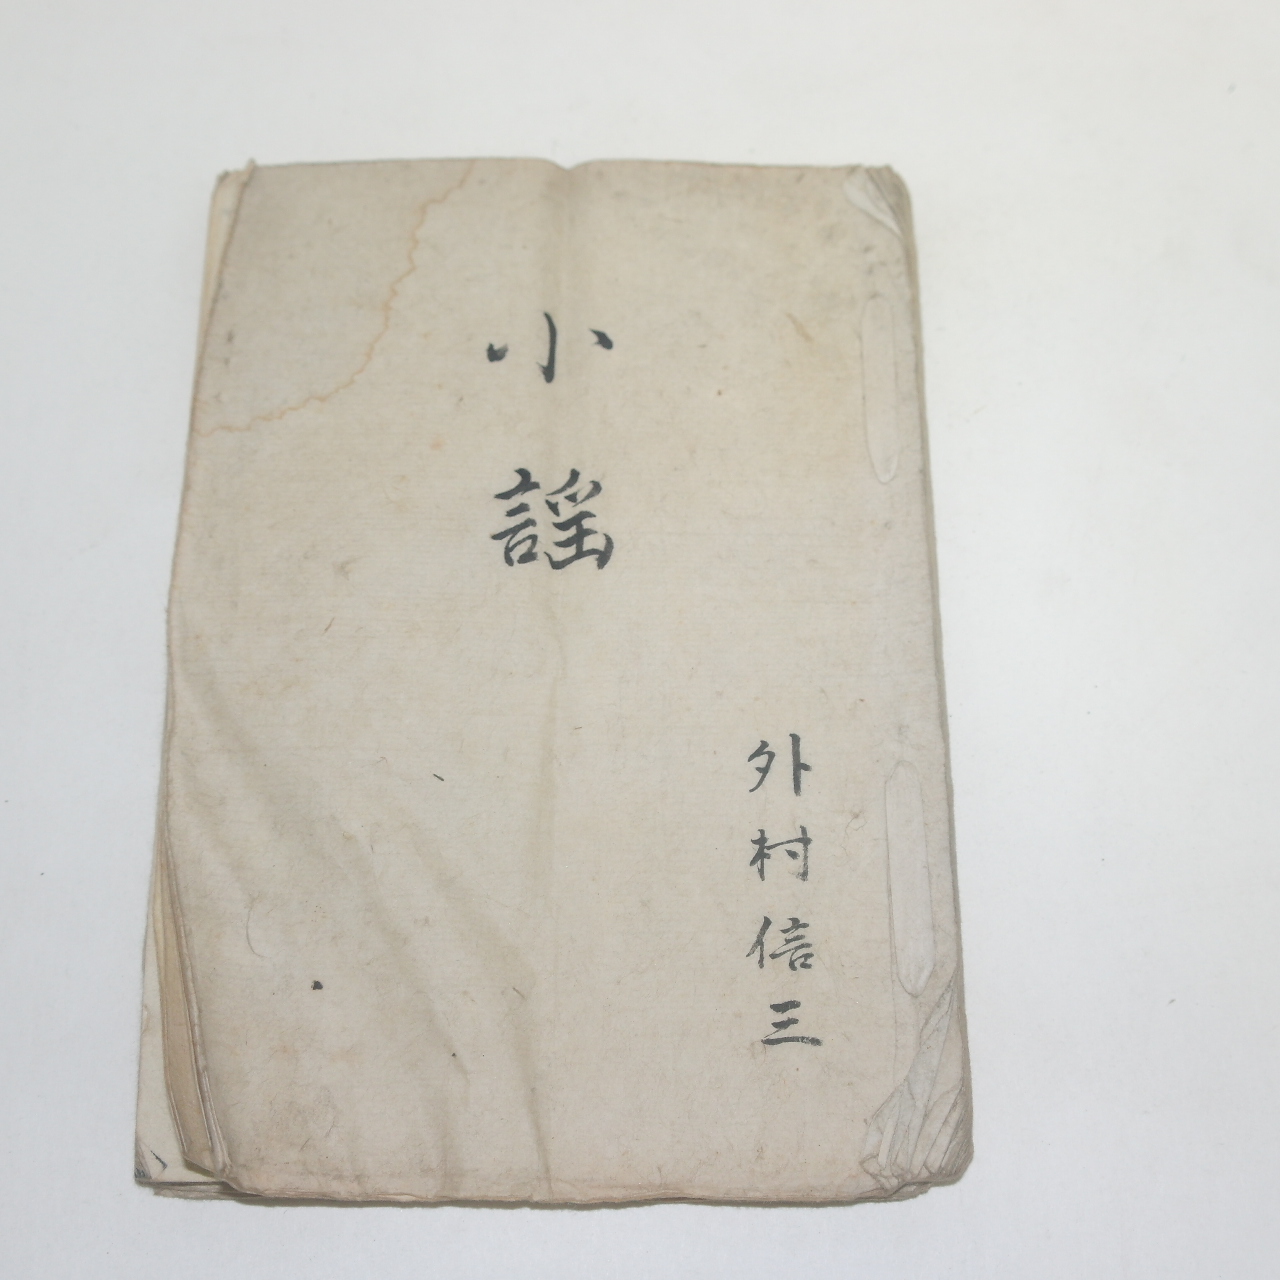 小謡
外村信三